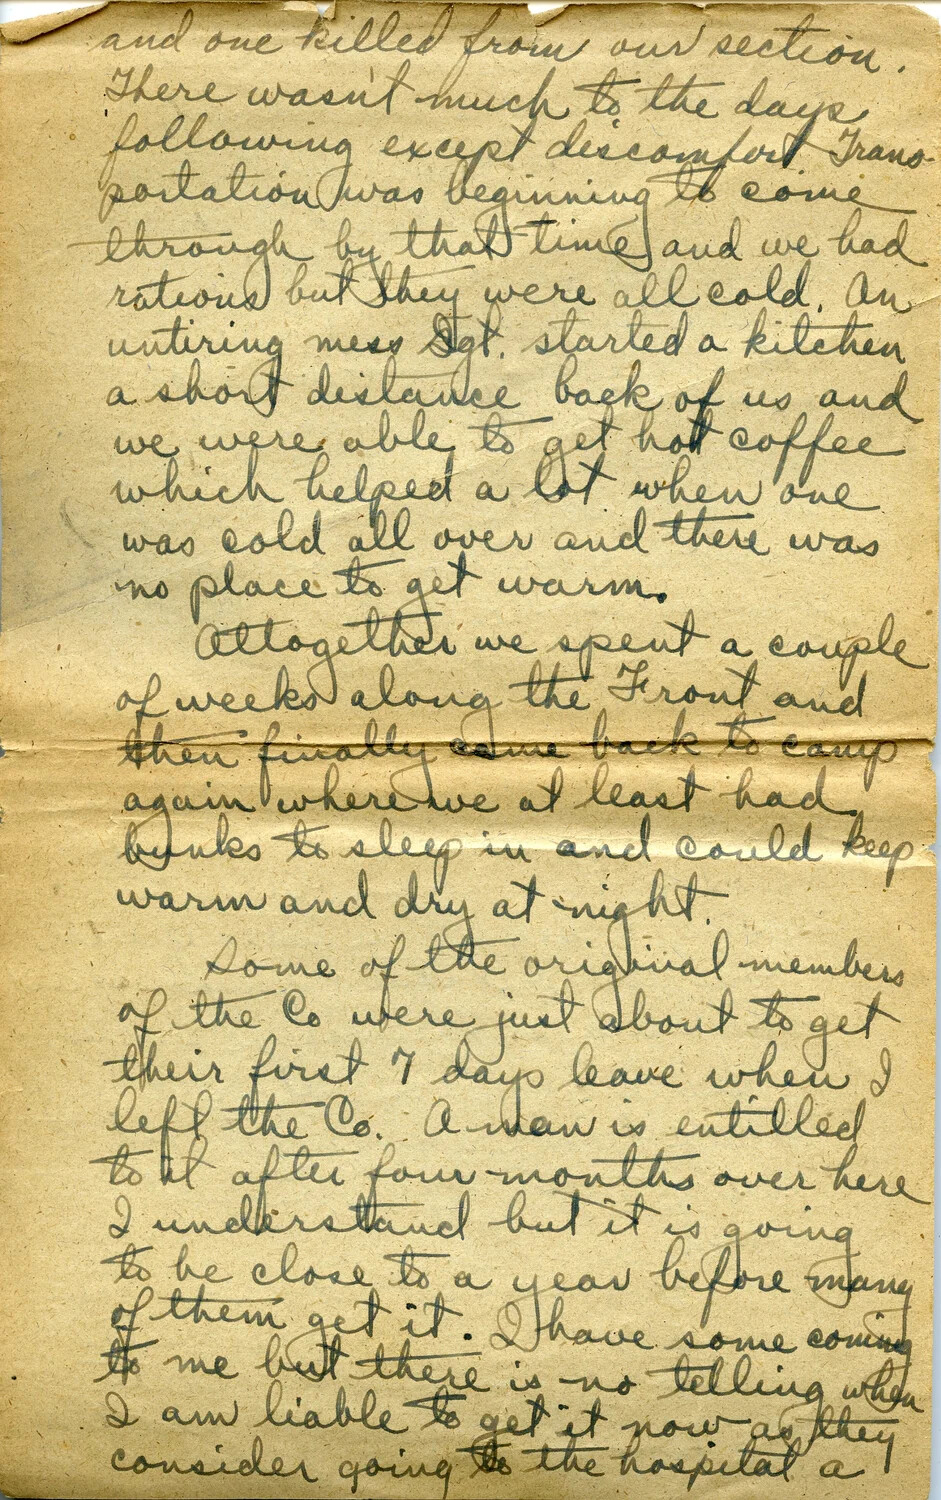 and one killed from our section.
There wasn't much to the days
following except discomfort. Trans-
portation was beginning to come
through by that time and we had
rations but they were all cold. An
untiring mess Sgt. started a kitchen
a short distance back of us and
we were able to get hot coffee
which helped a lot when one
was cold all over and there was
no place to get warm.
Altogether we spent a couple
of weeks along the Front and
then finally came back to camp
again where we at least had
bunks to sleep in and could keep
warm and dry at night.
Some of the original members
of the Co were just about to get
their first 7 days leave when I
left the Co. A man is entitled
to it after four months over here
I understand but it is going
to be close to a year before many
of them get it. I have some coming
to me but there is no telling when
I am liable to get it now as they
consider going to the hospital a